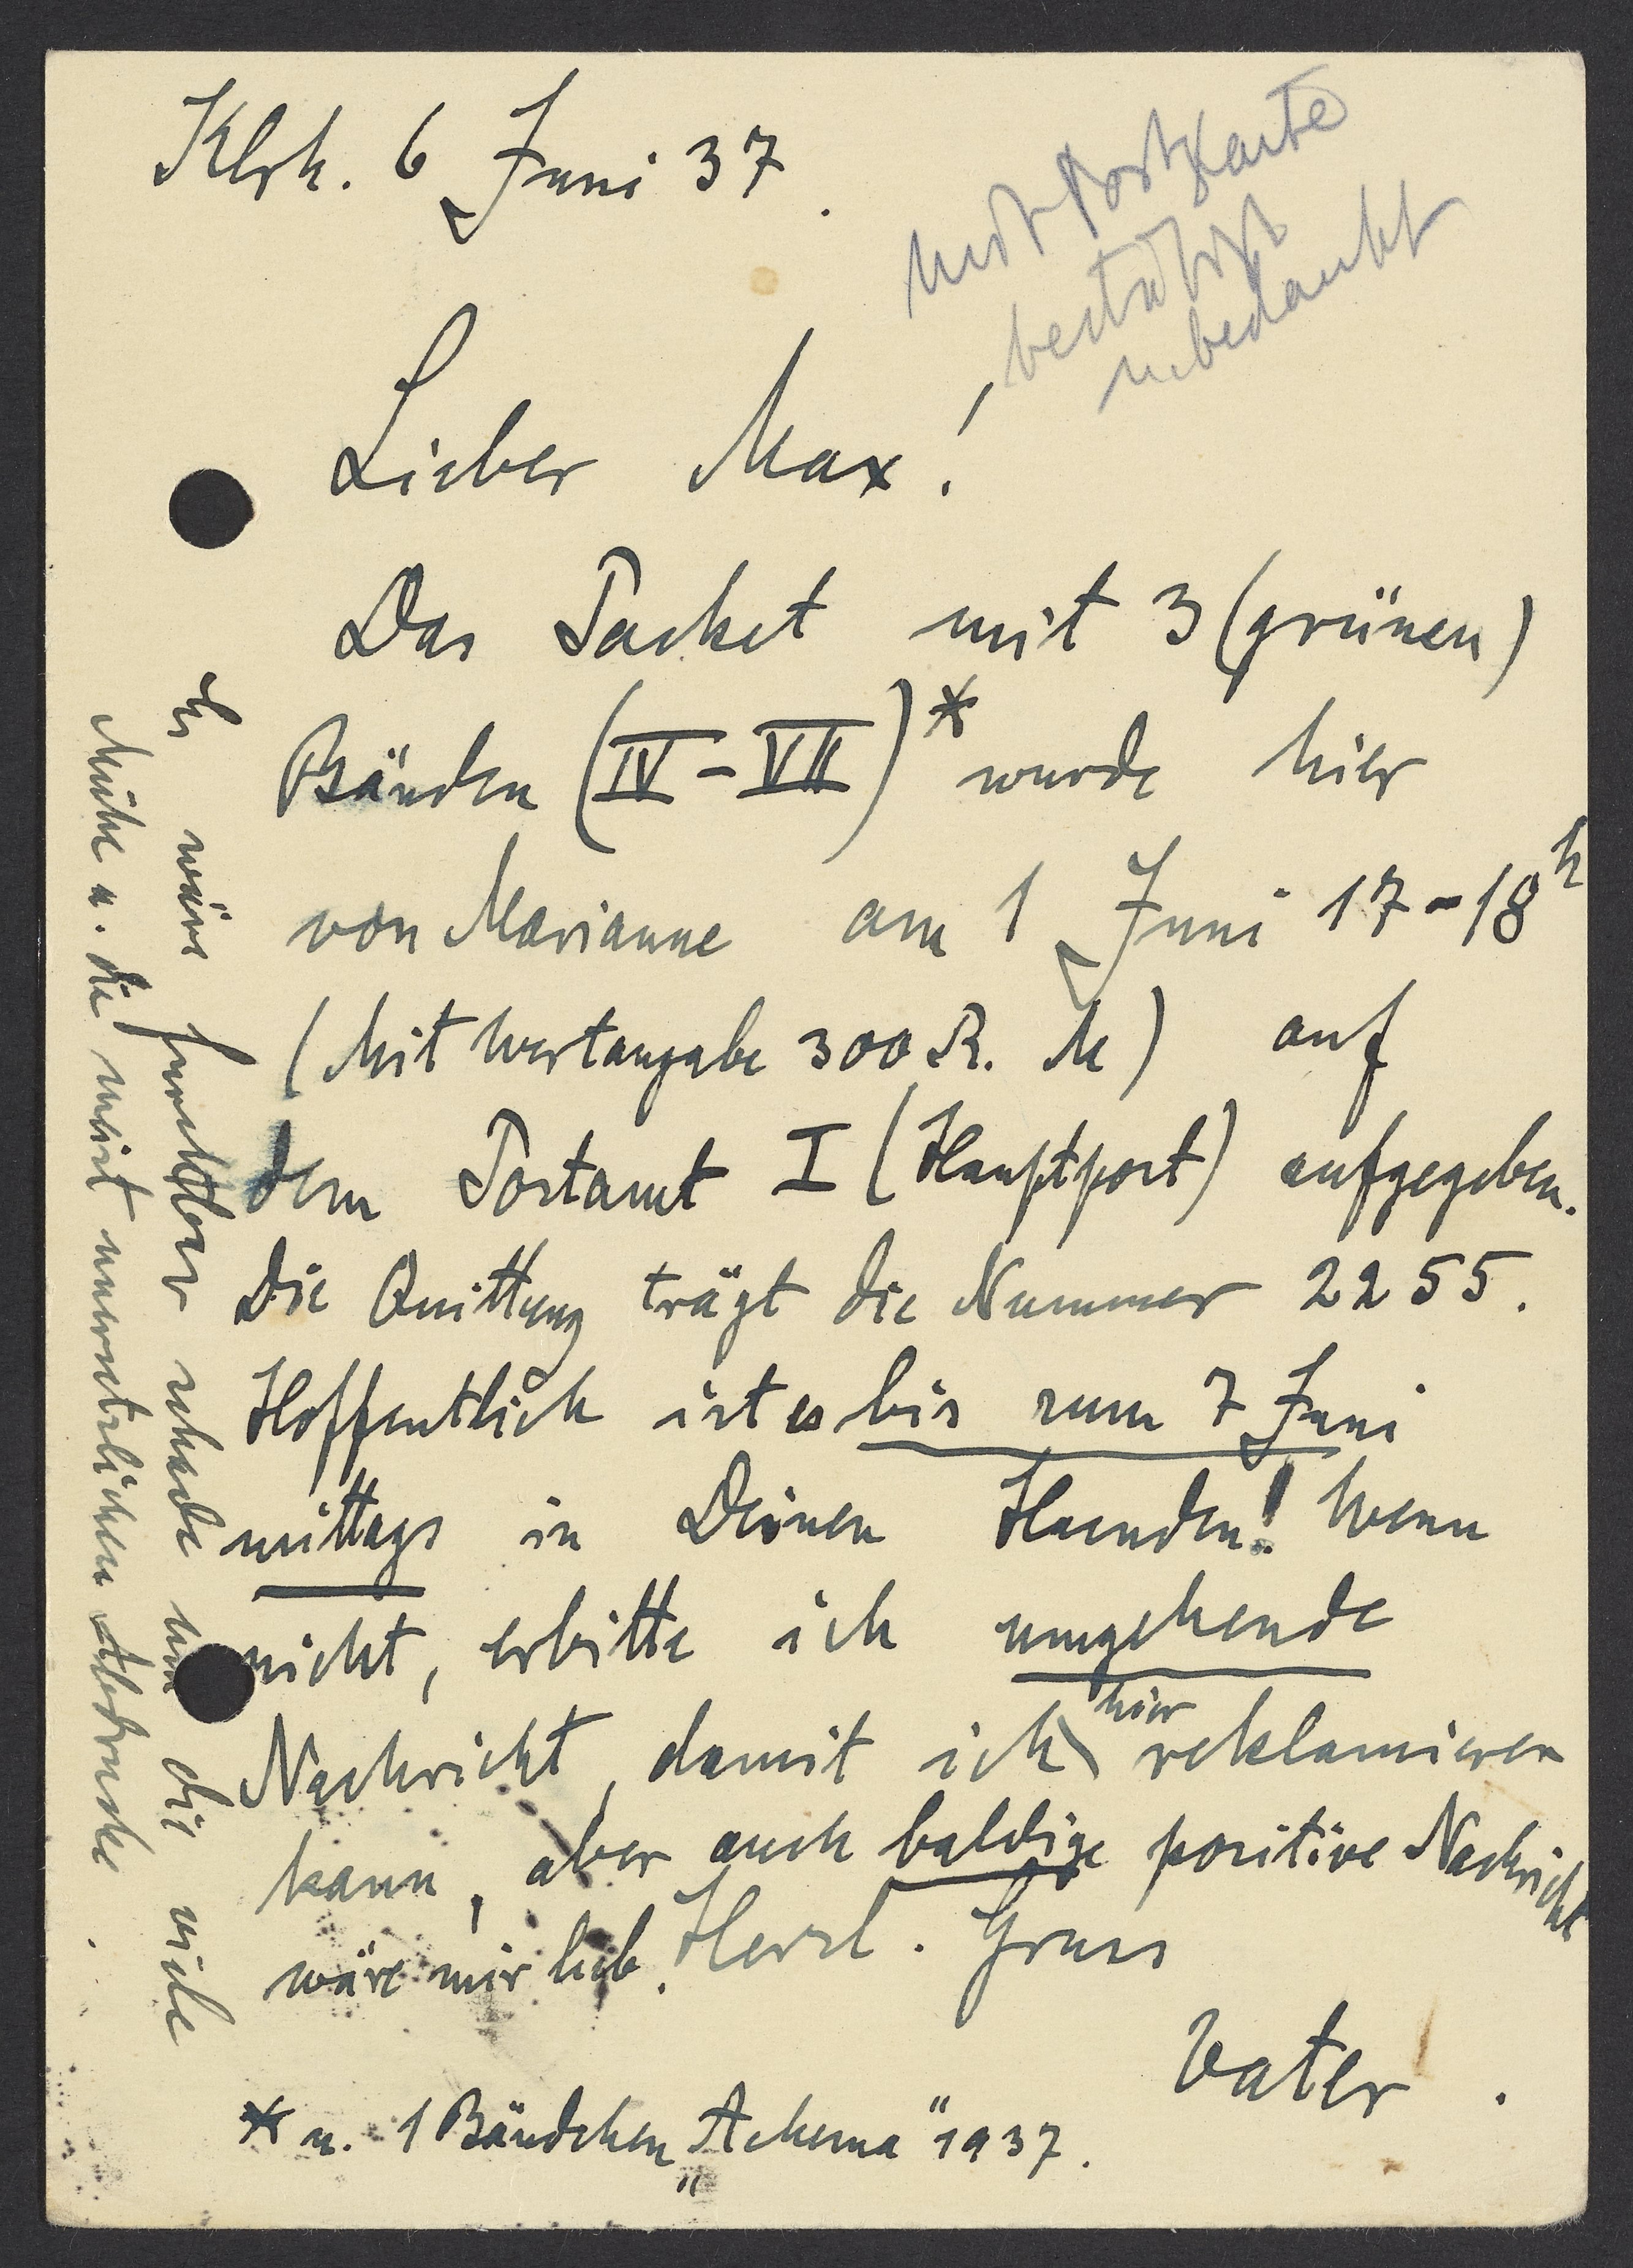 Klrh. 6 Juni 37.
mit Postkarte
bestätigt
u. bedankt
Lieber Max!
Das Packet mit 3 (grünen)
Bänden (IV-VII)* wurde hier
von Marianne am 1 Juni 17-18h
(Mit Wertangabe 300 R. M) auf
dem Postamt I (Hauptpost) aufgegeben.
Die Quittung trägt die Nummer 2255.
Hoffentlich ist es bis zum 7 Juni
mittags in Deinen Haenden! Wenn
nicht, erbitte ich umgehende
Nachricht, damit ich hier reklamieren
kann, aber auch baldige positive Nachricht
wäre mir lieb. Herzl. Gruss
Vater.
* u. 1 Bändchen „Achema" 1937.
Es wäre furchtbar schade um die viele
Mühe u. die meist unersetzlichen Abdrucke.